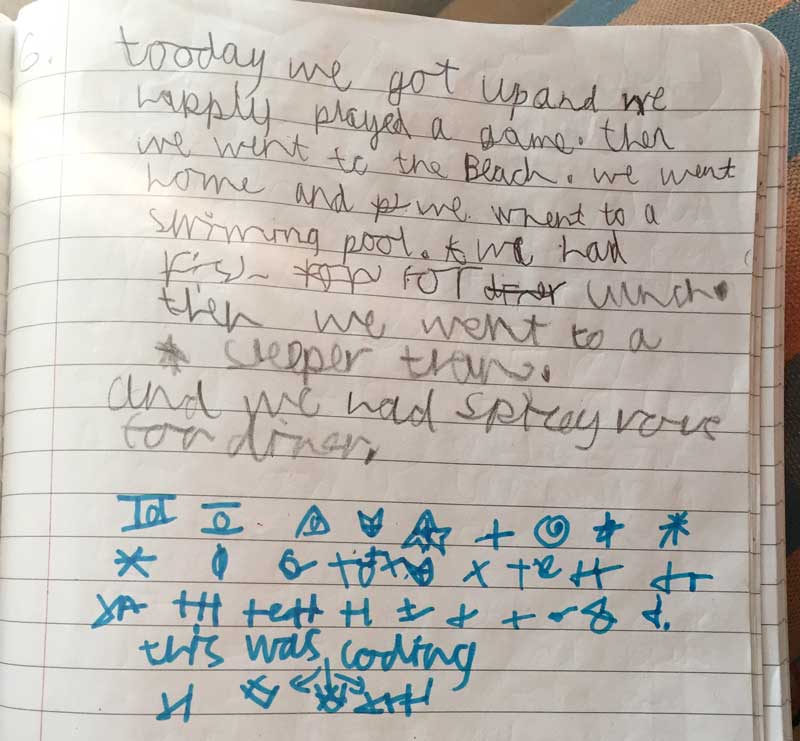 6.
tooday we got up and we
happly played a game. then
we went to the Beach. we went
home and we whent to a
swiming pool. we had
fish FOT diner lunch.
then we went to a
sleeper tran.
and we had spicey
diner.
this was coding